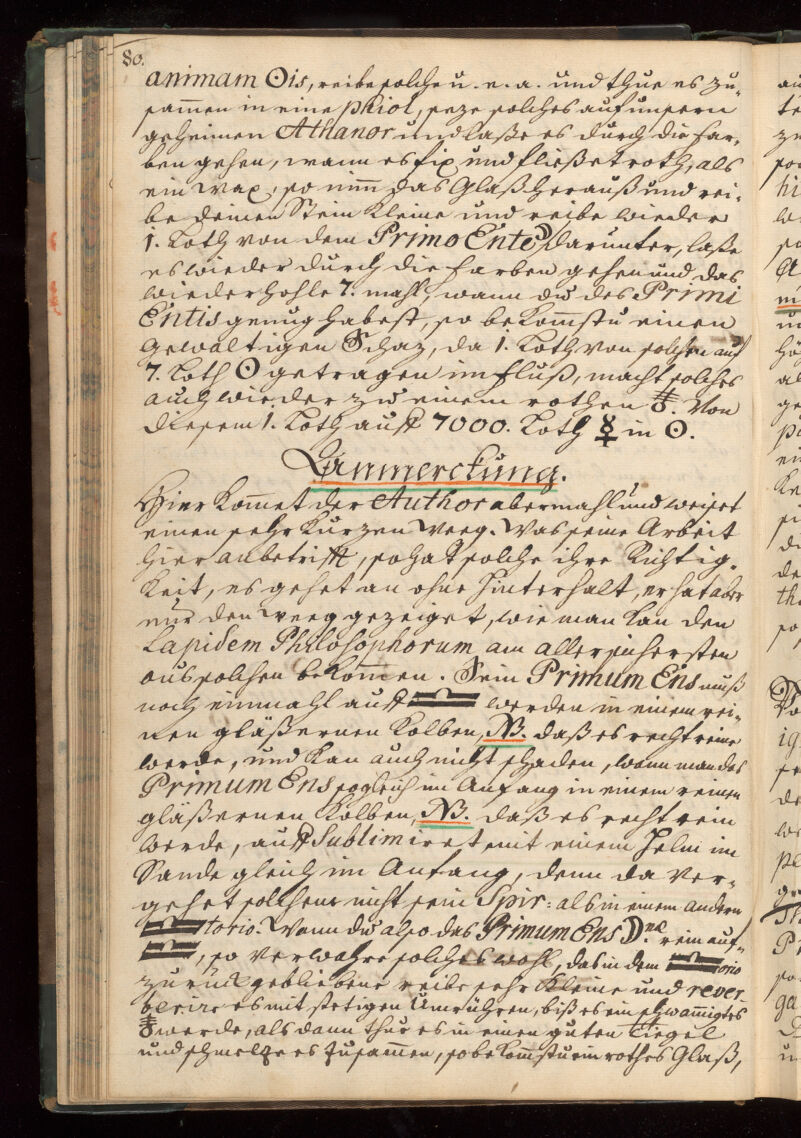 80.
animam ☉is, reibe solche u. e. a. und thue es zu-
samen in eine phiol, seze solches auf unsern
geheimen Athanor und laße es durch die far-
ben gehen, wann es fix und fließet roth, als
ein wax, so nim das Glaß herauß und rei-
be deinen Stein kleine und reibe wieder
1. Loth von dem Primo Ente ☽ darunter, laße
es wieder durch die farben gehen und das
wiederhohle 7. mahl, wann du des Primi
Entis genug habest, so bekomstu einen
gewaltigen Schaz, da 1. Loth von solchen auf
7. Loth ☉ getragen im fluß, macht solches
auch wieder zu einem rothen. Von
diesem 1. Loth auff 7000. Loth ☿ in ☉.
Anmerckung.
Hier komet der Author abermahl und weiset
einen sehr kurzen weeg. Was seine Arbeit
hier anbetrifft, so hat solche ihre Richtig-
keit, es gehet an ohne hinterhalt, er hat aber
nur den weeg gezeiget, wie man kan den
Lapidem Philosophorum am allersichersten
aus solchen bekomen. Sein Primum Ens muß
noch einmahl auff werden in einem rei-
nen gläßernen Kolben, NB. daß es recht reine
werde, und kan auch nicht schaden, wann man das
Primum Ens sogleich im Anfang in einem reinen
gläßernen Kolben, NB. daß es recht rein
werde, auff Sublimiret mit einem Helm im
Sande gleich im Anfang, denn da ver-
gehet solchem nicht sein Spir: als in einem andern
torio. Wann du also das Primum Ens ☽næ rein auf-
, so verwahre solches wohl, das in dem orio
zurück gebliebene reibe sehr kleine und rever
berire es mit stetigen Umrühren, biß es ein schwammigtes
werde, als dann thue es in einen guten Tiegel
und schmelze es zusamen, so bekomstu ein rothes Glaß,